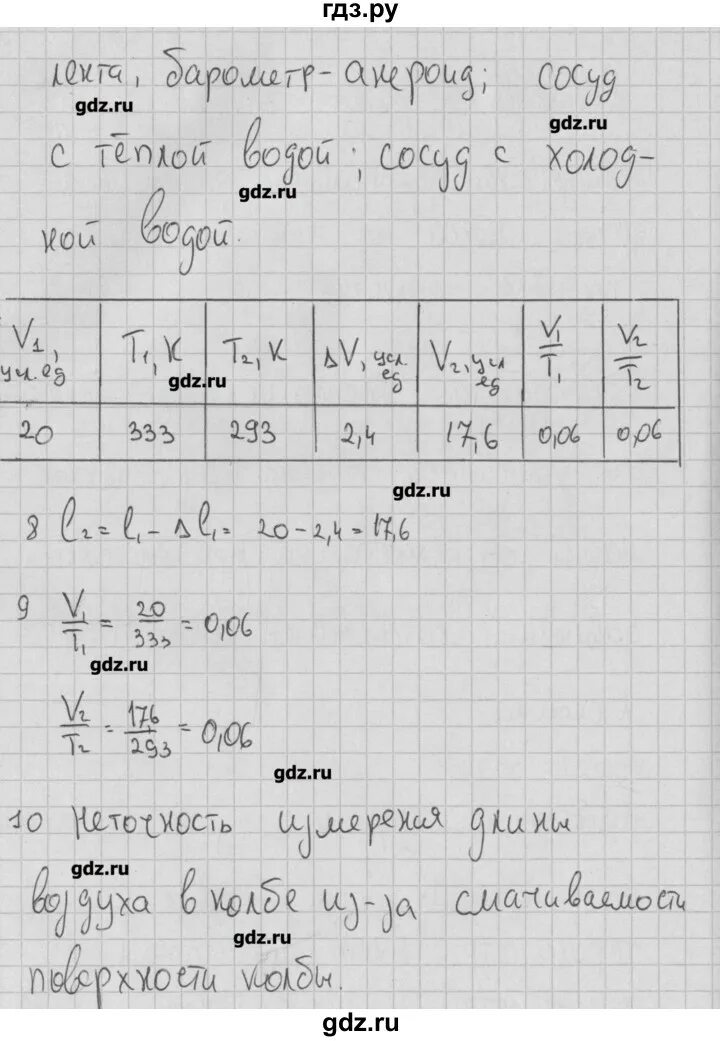 гдз.ру
лента, барометр-анероид; сосуд
gdz.ru
gdz.ru
с тёплой водой; сосуд с холод-
gdz.ru
ной водой.
V₁, усл.ед | T₁, К | T₂, К | ΔV, усл ед | V₂, усл ед | V₁/T₁ | V₂/T₂
gdz.ru
20 | 333 | 293 | 2,4 | 17,6 | 0,06 | 0,06
gdz.ru
8 l₂ = l₁ - Δl₁ = 20 - 2,4 = 17,6
9 V₁/T₁ = 20/333 = 0,06
gdz.ru
V₂/T₂ = 17,6/293 = 0,06
gdz.ru
10 Неточность измерения длины
gdz.ru
воздуха в колбе из-за смачиваемости
gdz.ru
поверхности колбы.
gdz.ru